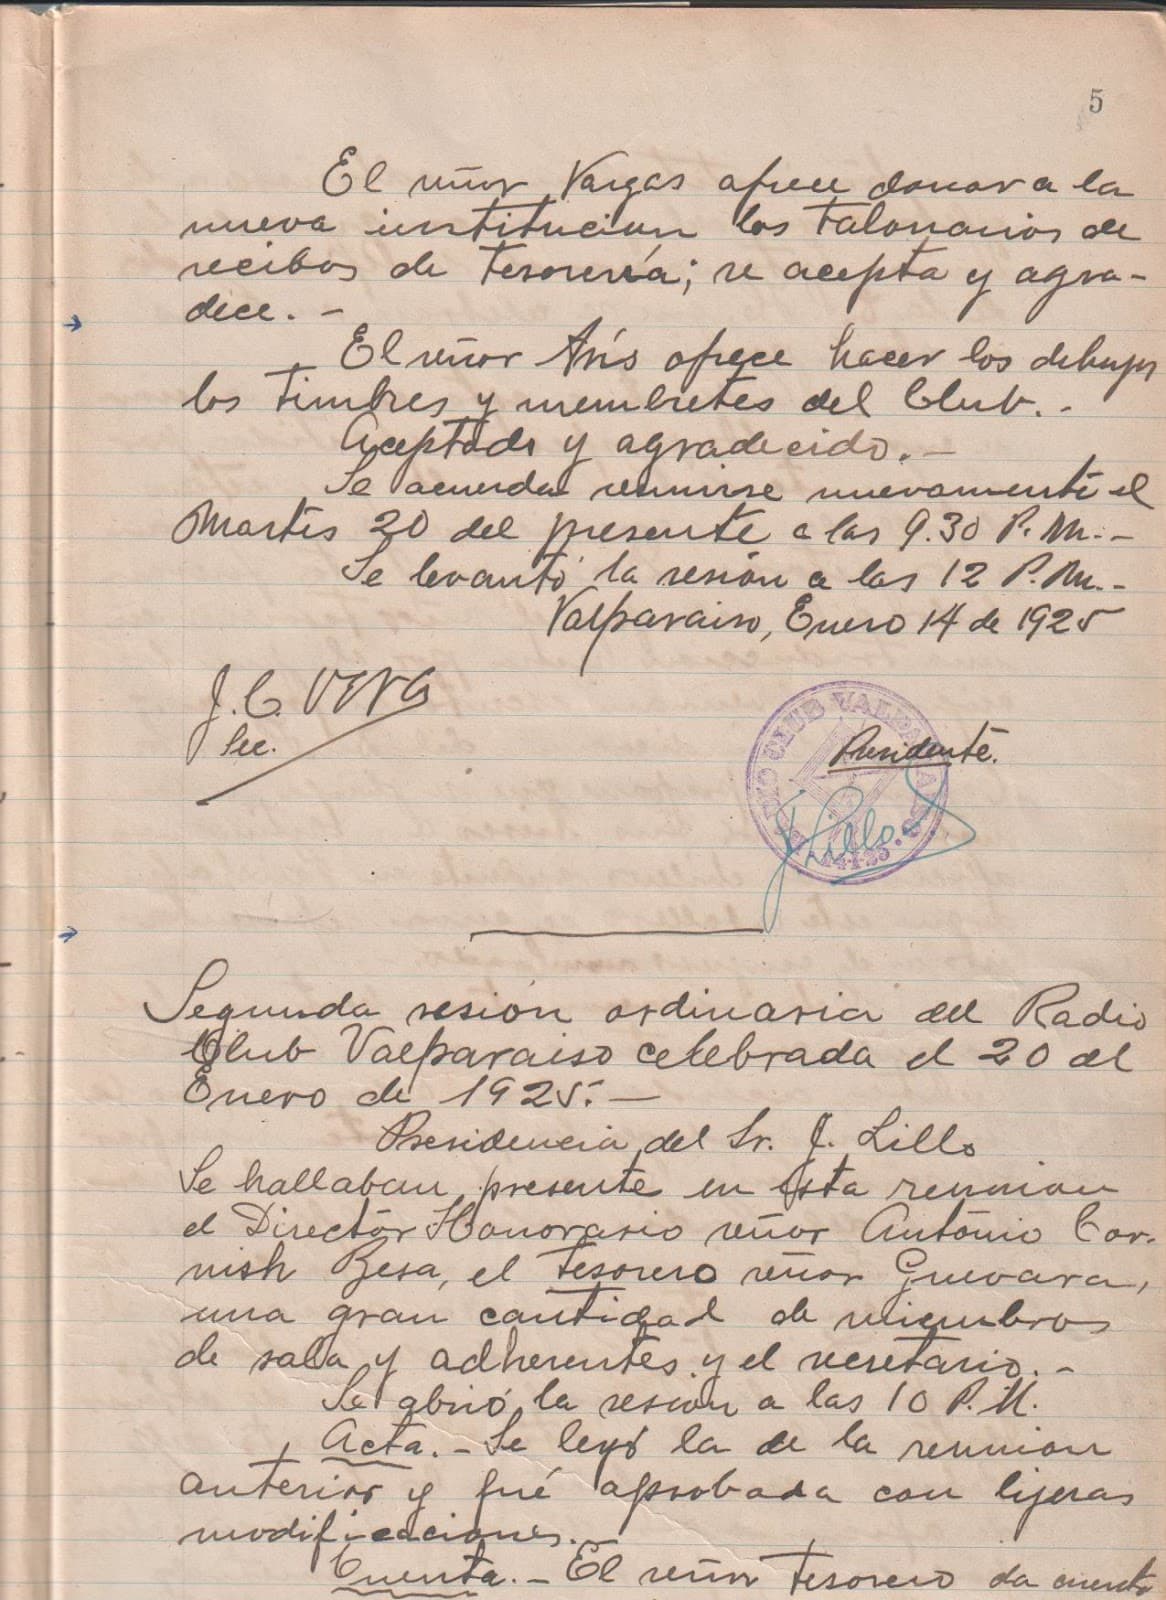 5
El señor Vargas ofrece donar a la
nueva institucion los talonarios de
recibos de tesorería; se acepta y agra-
dece. -
El señor Asís ofrece hacer los dibujos
los timbres y membretes del Club. -
Aceptado y agradecido. -
Se acuerda reunirse nuevamente el
Martes 20 del presente a las 9.30 P.M. -
Se levantó la sesión a las 12 P.M. -
Valparaiso, Enero 14 de 1925
J. C. VERA
Sec.
RADIO CLUB VALPARAISO
Presidente.
JLillo
Segunda sesión ordinaria del Radio
Club Valparaiso celebrada el 20 de
Enero de 1925. -
Presidencia del Sr. J. Lillo
Se hallaban presente en ésta reunion
el Director Honorario señor Antonio Cor-
nish Besa, el tesorero señor Guevara,
una gran cantidad de miembros
de sala y adherentes y el secretario. -
Se abrió la sesion a las 10 P.M.
Acta. - Se leyó la de la reunion
anterior y fué aprobada con lijeras
modificaciones. -
Cuenta. - El señor tesorero da cuenta